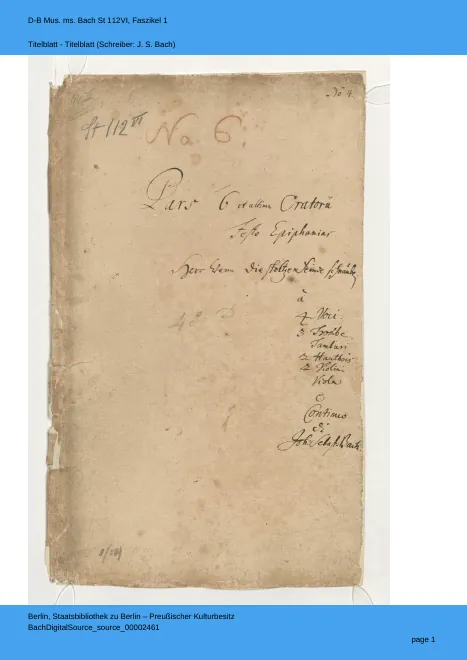 D-B Mus. ms. Bach St 112VI, Faszikel 1
Titelblatt - Titelblatt (Schreiber: J. S. Bach)
No 4
St 112 VI
No. 6.
Pars 6 et ultima Oratorii
Festo Epiphanias
Herr wenn die stoltzen Feinde schnauben
à
4 Voci.
3 Trombe
Tamburi
2 Hautbois
2 Violini
Viola
e
Continuo
di
Joh. Sebast. Bach.
Berlin, Staatsbibliothek zu Berlin – Preußischer Kulturbesitz
BachDigitalSource_source_00002461
page 1